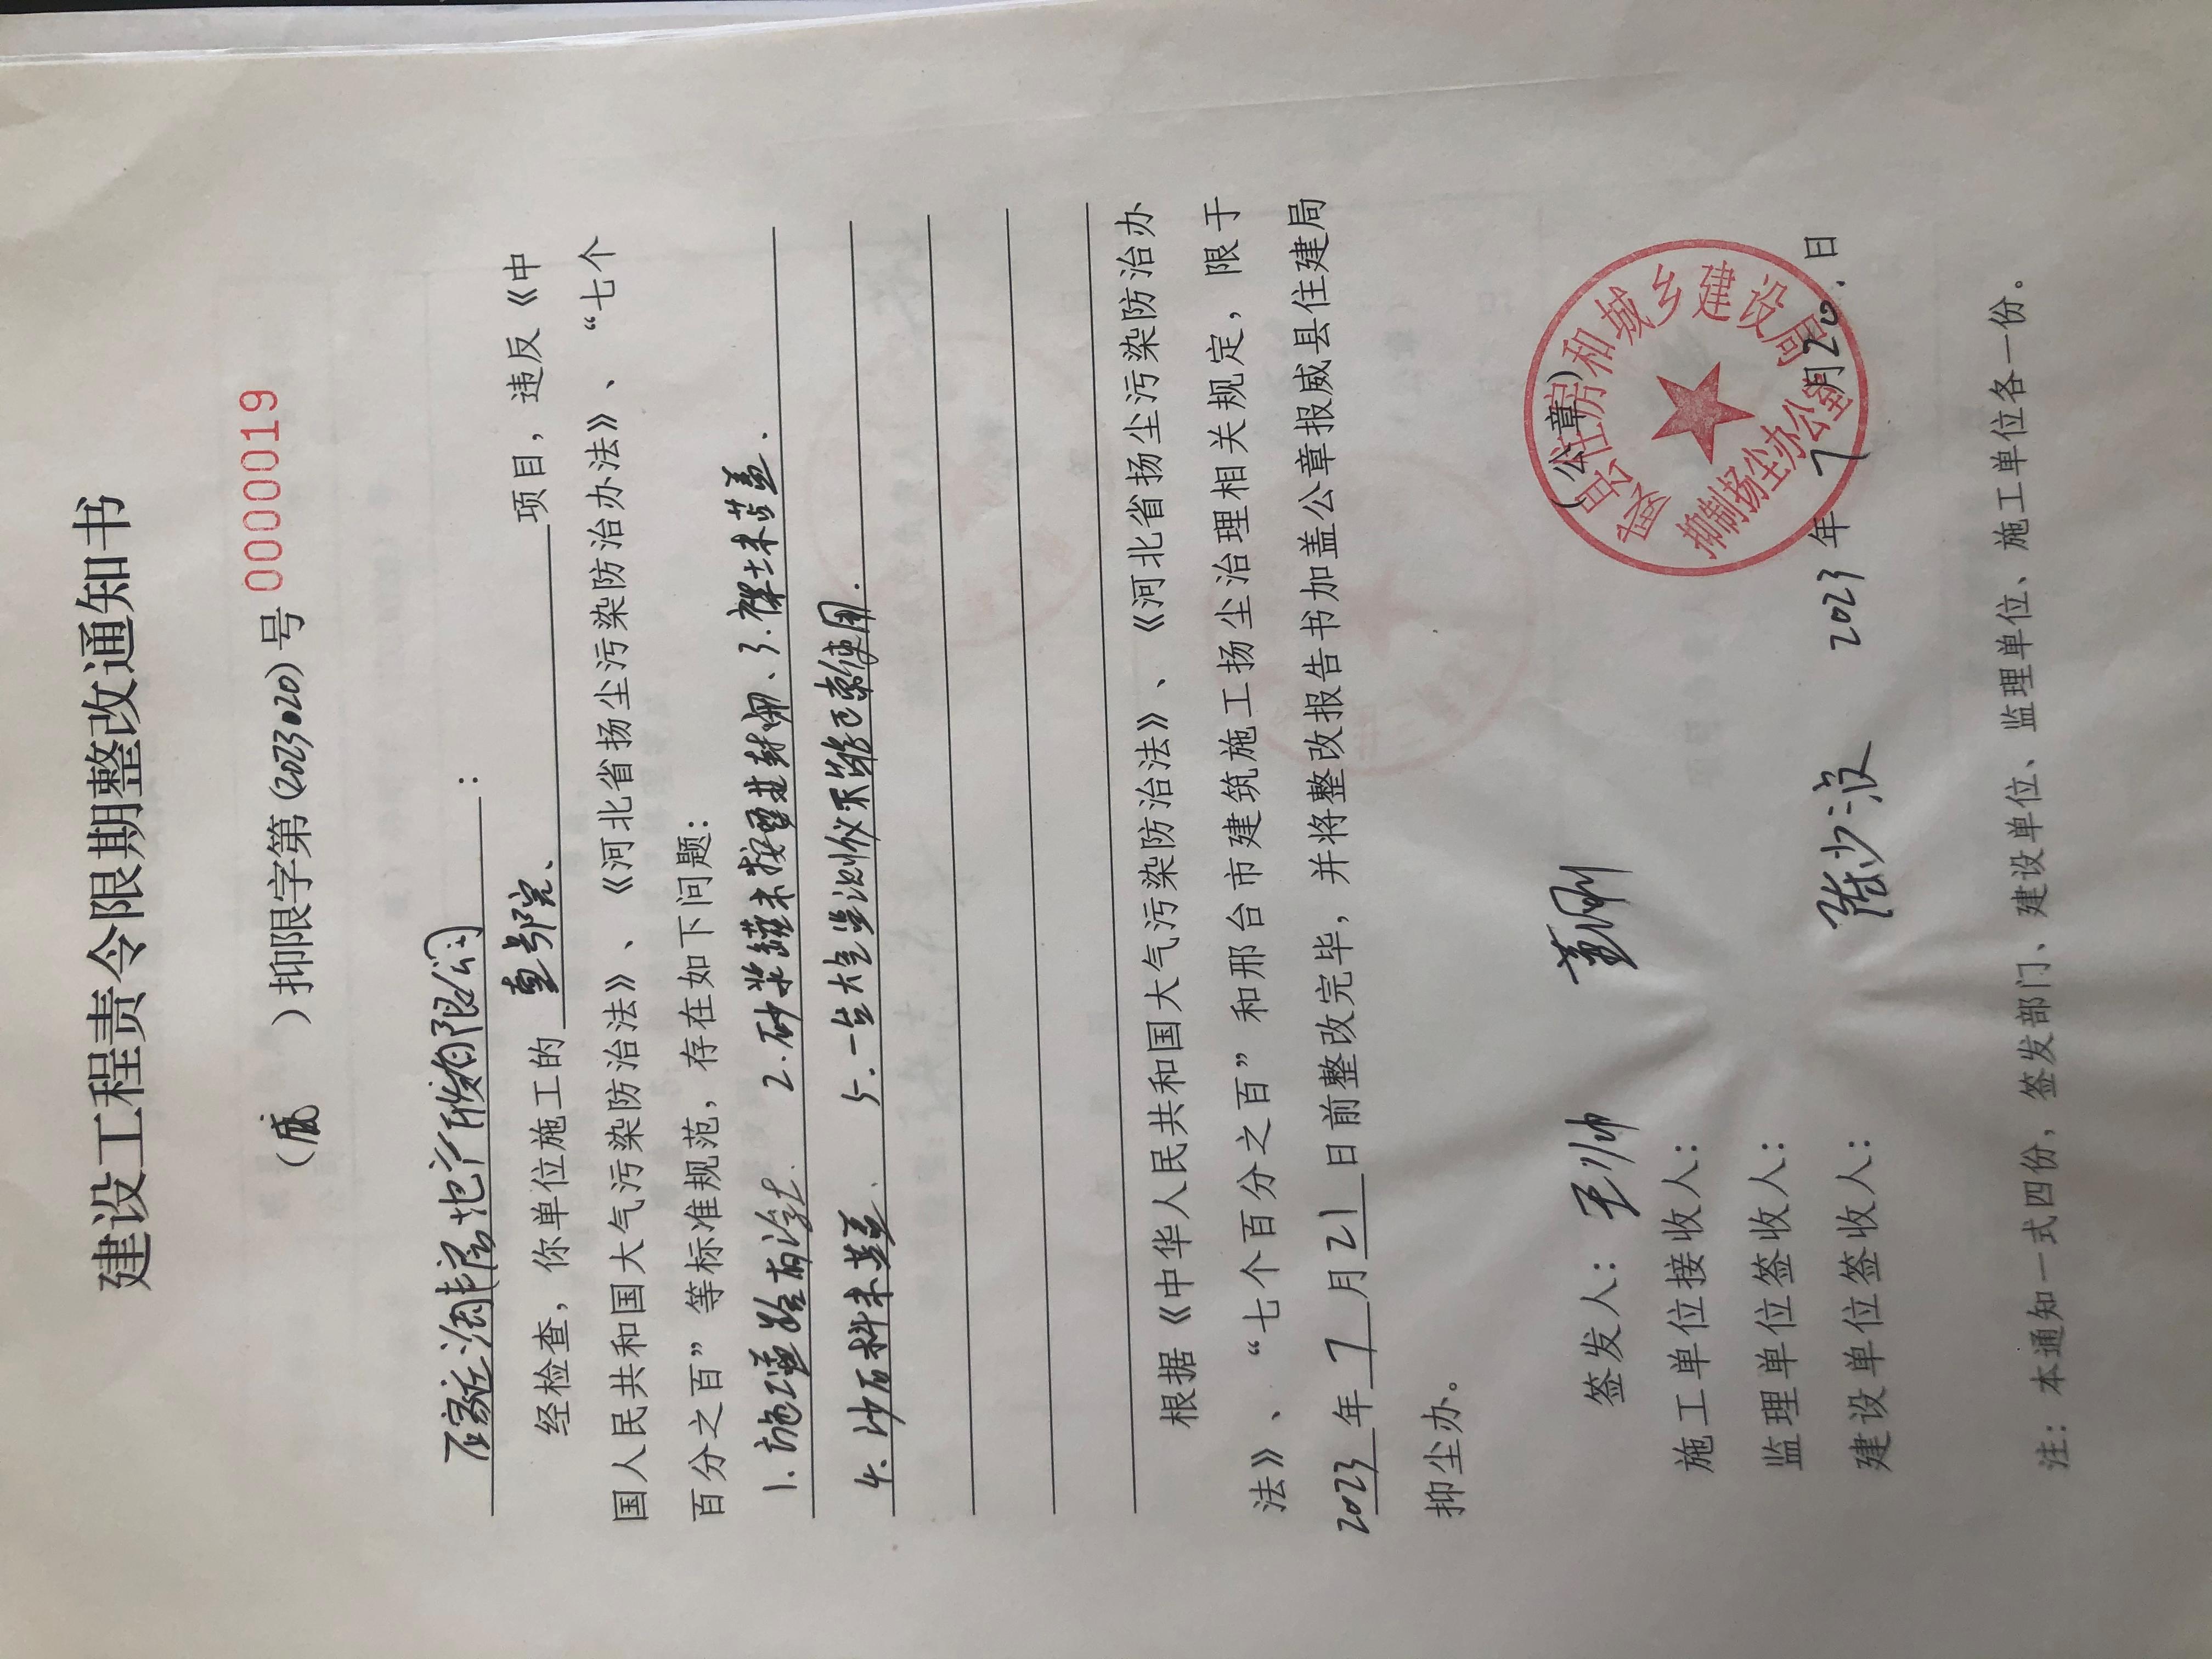 建设工程责令限期整改通知书
(威 ) 抑限字第(2023.20)号 0000019
石家庄润生房地产开发有限公司:
经检查，你单位施工的 项目，违反《中
国人民共和国大气污染防治法》、《河北省扬尘污染防治办法》、“七个
百分之百”等标准规范，存在如下问题:
1.施工道路有浮土. 2.砂浆罐未按要求封闭、3.裸土未苫盖.
4.沙石料未苫盖、 5.一台大气监测仪不能正常使用.
根据《中华人民共和国大气污染防治法》、《河北省扬尘污染防治办
法》、“七个百分之百”和邢台市建筑施工扬尘治理相关规定，限于
2023年7月21日前整改完毕，并将整改报告书加盖公章报威县住建局
抑尘办。
签发人: 王帅 (公章)
施工单位接收人:
监理单位签收人:
建设单位签收人: 2023年7月20.日
威县住房和城乡建设局
抑制扬尘办公室
注: 本通知一式四份，签发部门、建设单位、监理单位、施工单位各一份。